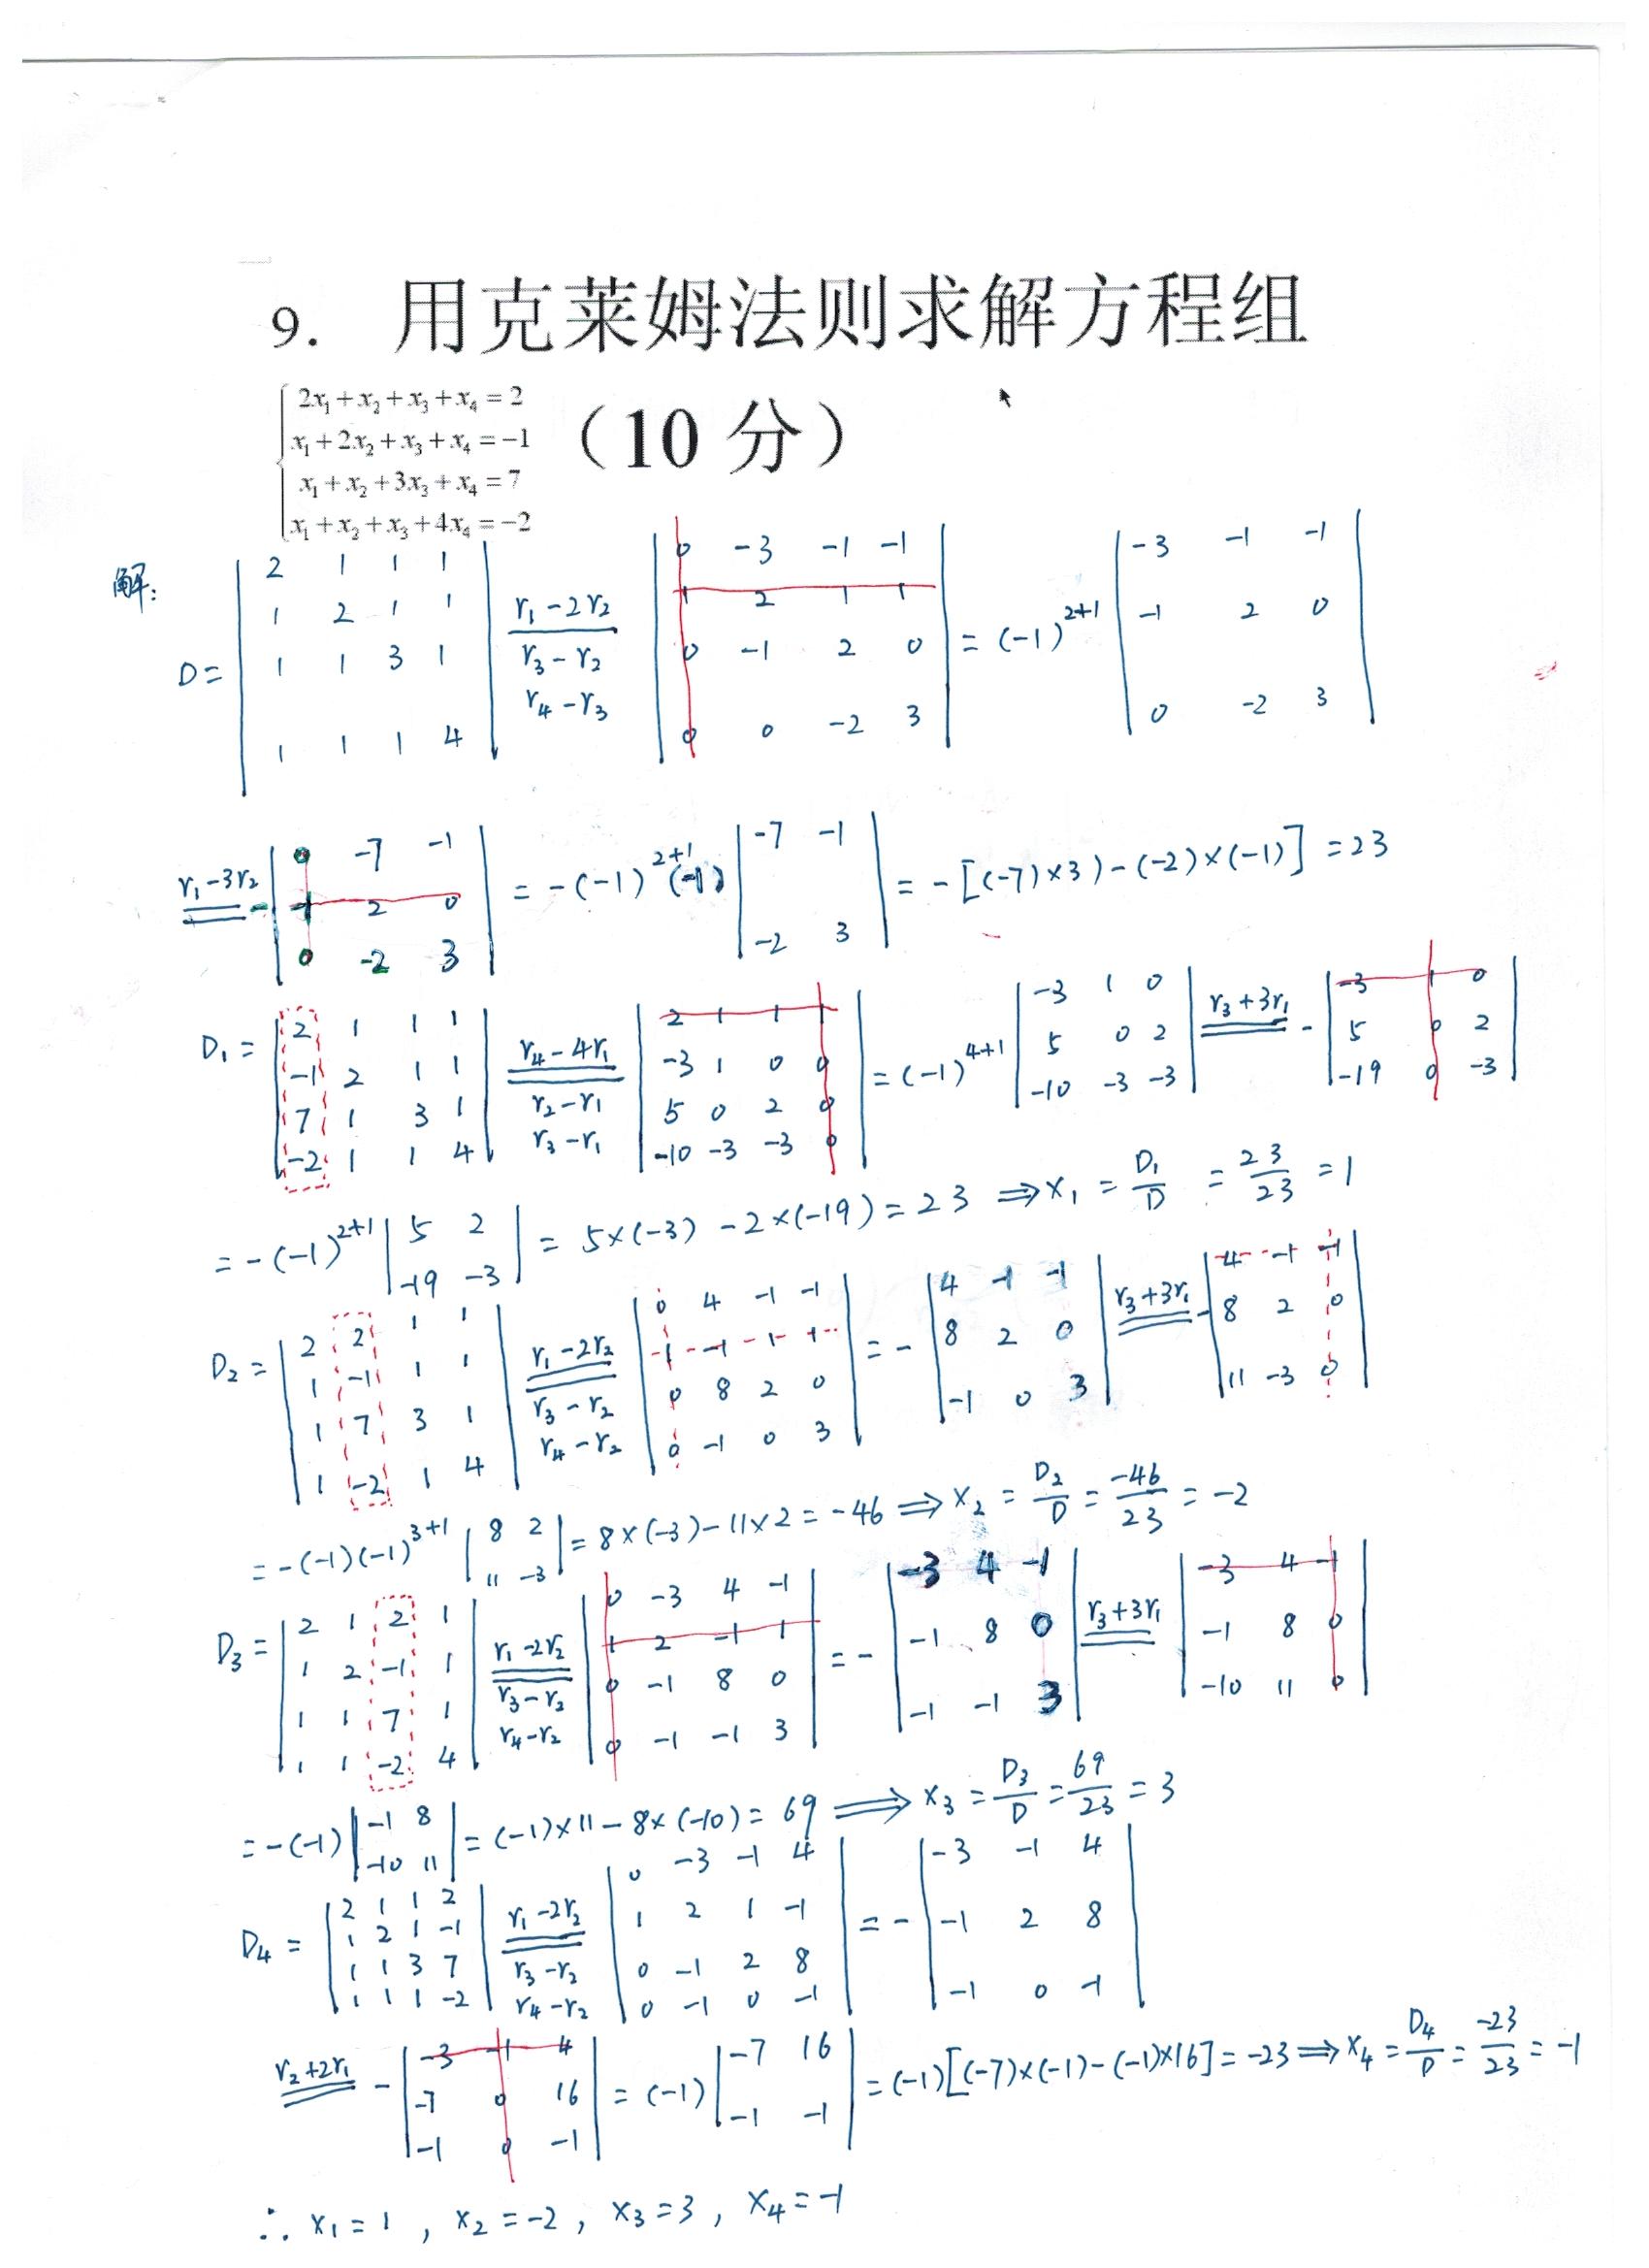 9. 用克莱姆法则求解方程组
2x₁+x₂+x₃+x₄=2
x₁+2x₂+x₃+x₄=-1 （10 分）
x₁+x₂+3x₃+x₄=7
x₁+x₂+x₃+4x₄=-2
解: D= |2 1 1 1; 1 2 1 1; 1 1 3 1; 1 1 1 4| r₁-2r₂ r₃-r₂ r₄-r₃ |0 -3 -1 -1; 1 2 1 1; 0 -1 2 0; 0 0 -2 3| = (-1)²⁺¹ |-3 -1 -1; -1 2 0; 0 -2 3|
r₁-3r₂ - |0 -7 -1; -1 2 0; 0 -2 3| = -(-1)²⁺¹(-1) |-7 -1; -2 3| = -[(-7)×3)-(-2)×(-1)] =23
D₁= |2 1 1 1; -1 2 1 1; 7 1 3 1; -2 1 1 4| r₄-4r₁ r₂-r₁ r₃-r₁ |2 1 1 1; -3 1 0 0; 5 0 2 0; -10 -3 -3 0| = (-1)⁴⁺¹ |-3 1 0; 5 0 2; -10 -3 -3| r₃+3r₁ - |-3 1 0; 5 0 2; -19 0 -3|
= -(-1)²⁺¹ |5 2; -19 -3| = 5×(-3) -2×(-19) = 23 ⇒ x₁ = D₁/D = 23/23 = 1
D₂= |2 2 1 1; 1 -1 1 1; 1 7 3 1; 1 -2 1 4| r₁-2r₂ r₃-r₂ r₄-r₂ |0 4 -1 -1; 1 -1 1 1; 0 8 2 0; 0 -1 0 3| = - |4 -1 -1; 8 2 0; -1 0 3| r₃+3r₁ - |4 -1 -1; 8 2 0; 11 -3 0|
= -(-1)(-1)³⁺¹ |8 2; 11 -3| = 8×(-3)-11×2 = -46 ⇒ x₂ = D₂/D = -46/23 = -2
D₃= |2 1 2 1; 1 2 -1 1; 1 1 7 1; 1 1 -2 4| r₁-2r₂ r₃-r₂ r₄-r₂ |0 -3 4 -1; 1 2 -1 1; 0 -1 8 0; 0 -1 -1 3| = - |-3 4 -1; -1 8 0; -1 -1 3| r₃+3r₁ |-3 4 -1; -1 8 0; -10 11 0|
= -(-1) |-1 8; -10 11| = (-1)×11-8×(-10) = 69 ⇒ x₃ = D₃/D = 69/23 = 3
D₄= |2 1 1 2; 1 2 1 -1; 1 1 3 7; 1 1 1 -2| r₁-2r₂ r₃-r₂ r₄-r₂ |0 -3 -1 4; 1 2 1 -1; 0 -1 2 8; 0 -1 0 -1| = - |-3 -1 4; -1 2 8; -1 0 -1|
r₂+2r₁ - |-3 -1 4; -7 0 16; -1 0 -1| = (-1) |-7 16; -1 -1| = (-1)[(-7)×(-1)-(-1)×16] = -23 ⇒ x₄ = D₄/D = -23/23 = -1
∴ x₁=1 , x₂=-2 , x₃=3 , x₄=-1